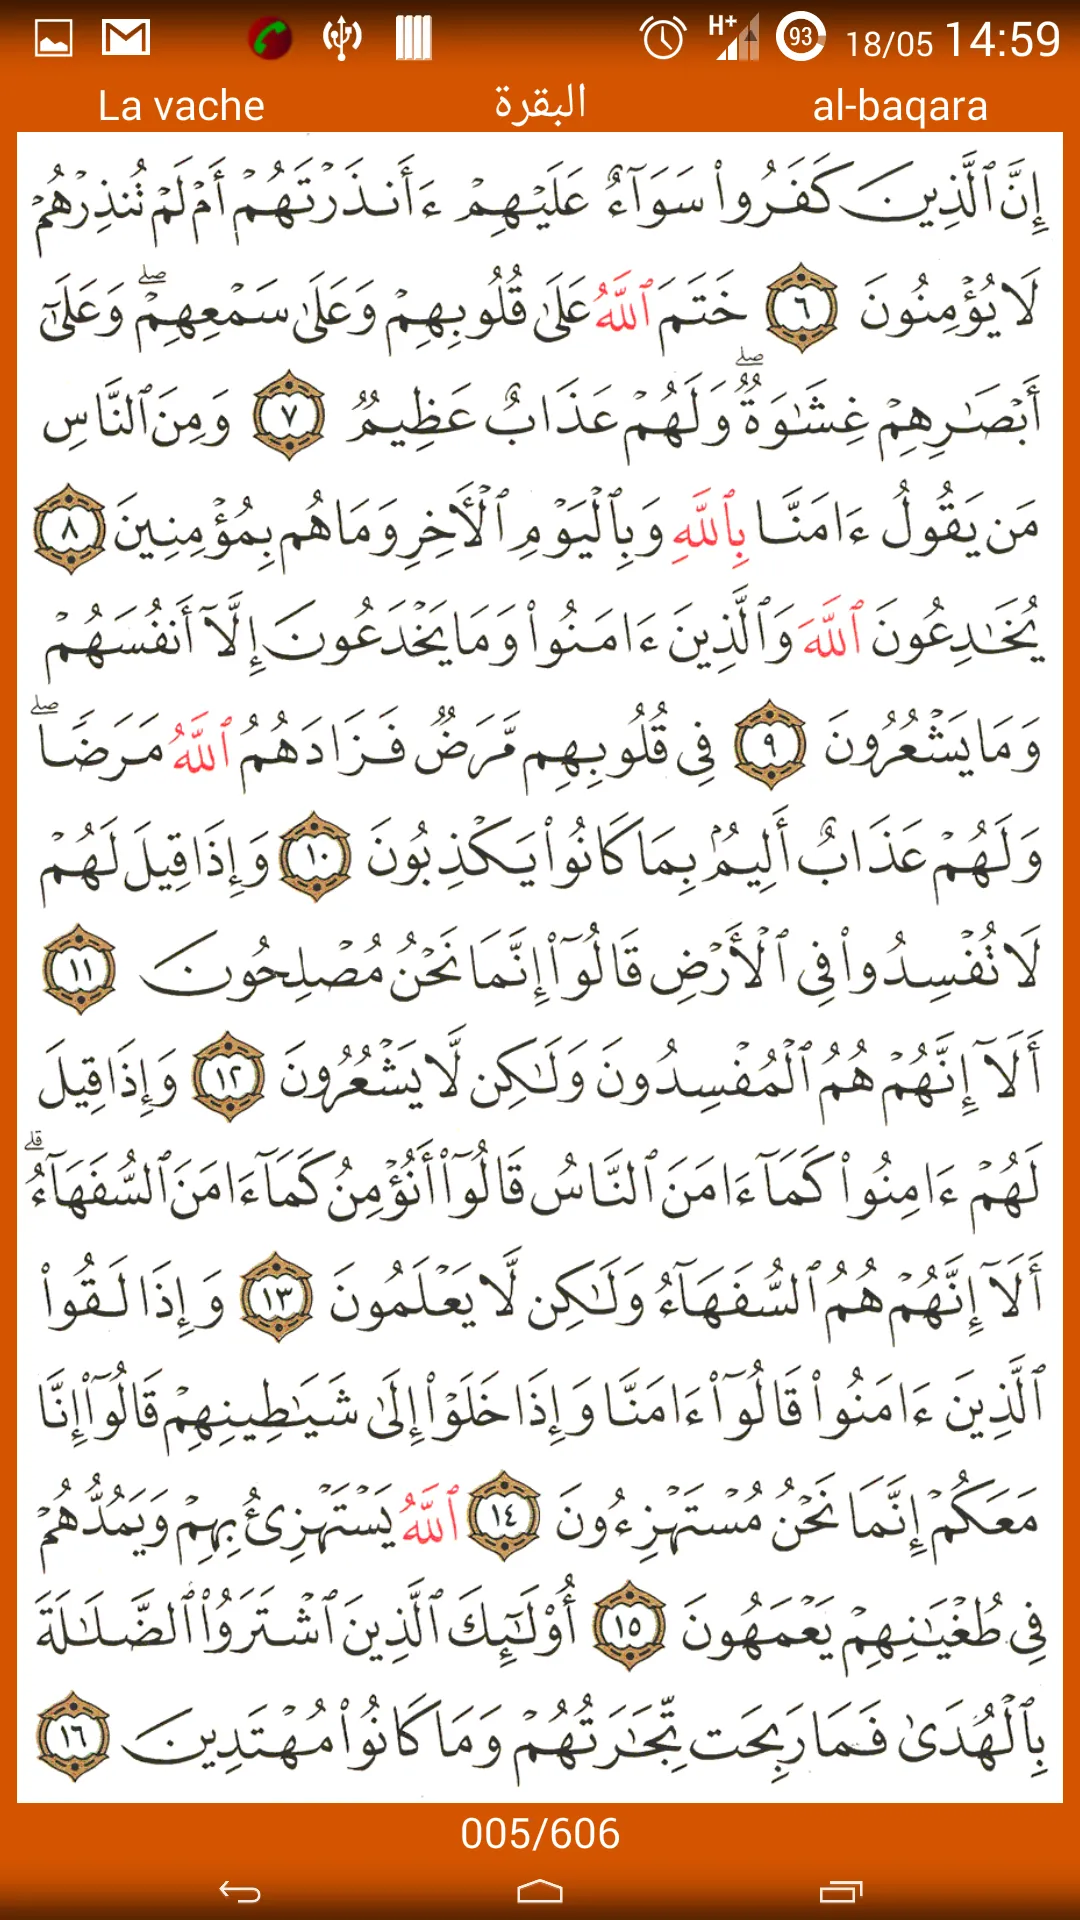 93 18/05 14:59
La vache البقرة al-baqara
إِنَّ ٱلَّذِينَ كَفَرُوا۟ سَوَآءٌ عَلَيْهِمْ ءَأَنذَرْتَهُمْ أَمْ لَمْ تُنذِرْهُمْ
لَا يُؤْمِنُونَ ٦ خَتَمَ ٱللَّهُ عَلَىٰ قُلُوبِهِمْ وَعَلَىٰ سَمْعِهِمْ ۖ وَعَلَىٰٓ
أَبْصَٰرِهِمْ غِشَٰوَةٌ ۖ وَلَهُمْ عَذَابٌ عَظِيمٌ ٧ وَمِنَ ٱلنَّاسِ
مَن يَقُولُ ءَامَنَّا بِٱللَّهِ وَبِٱلْيَوْمِ ٱلْءَاخِرِ وَمَا هُم بِمُؤْمِنِينَ ٨
يُخَٰدِعُونَ ٱللَّهَ وَٱلَّذِينَ ءَامَنُوا۟ وَمَا يَخْدَعُونَ إِلَّآ أَنفُسَهُمْ
وَمَا يَشْعُرُونَ ٩ فِى قُلُوبِهِم مَّرَضٌ فَزَادَهُمُ ٱللَّهُ مَرَضًا ۖ
وَلَهُمْ عَذَابٌ أَلِيمٌۢ بِمَا كَانُوا۟ يَكْذِبُونَ ١٠ وَإِذَا قِيلَ لَهُمْ
لَا تُفْسِدُوا۟ فِى ٱلْأَرْضِ قَالُوٓا۟ إِنَّمَا نَحْنُ مُصْلِحُونَ ١١
أَلَآ إِنَّهُمْ هُمُ ٱلْمُفْسِدُونَ وَلَٰكِن لَّا يَشْعُرُونَ ١٢ وَإِذَا قِيلَ
لَهُمْ ءَامِنُوا۟ كَمَآ ءَامَنَ ٱلنَّاسُ قَالُوٓا۟ أَنُؤْمِنُ كَمَآ ءَامَنَ ٱلسُّفَهَآءُ ۗ
أَلَآ إِنَّهُمْ هُمُ ٱلسُّفَهَآءُ وَلَٰكِن لَّا يَعْلَمُونَ ١٣ وَإِذَا لَقُوا۟
ٱلَّذِينَ ءَامَنُوا۟ قَالُوٓا۟ ءَامَنَّا وَإِذَا خَلَوْا۟ إِلَىٰ شَيَٰطِينِهِمْ قَالُوٓا۟ إِنَّا
مَعَكُمْ إِنَّمَا نَحْنُ مُسْتَهْزِءُونَ ١٤ ٱللَّهُ يَسْتَهْزِئُ بِهِمْ وَيَمُدُّهُمْ
فِى طُغْيَٰنِهِمْ يَعْمَهُونَ ١٥ أُو۟لَٰٓئِكَ ٱلَّذِينَ ٱشْتَرَوُا۟ ٱلضَّلَٰلَةَ
بِٱلْهُدَىٰ فَمَا رَبِحَت تِّجَٰرَتُهُمْ وَمَا كَانُوا۟ مُهْتَدِينَ ١٦
005/606